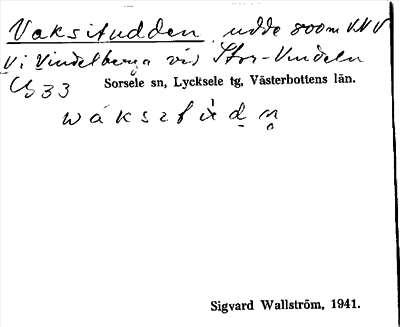 Vaksitudden, udde 800 m VNV
Vi Vindelberga vid Stor-Vindeln
33 Sorsele sn, Lycksele tg, Västerbottens län.
Sigvard Wallström, 1941.